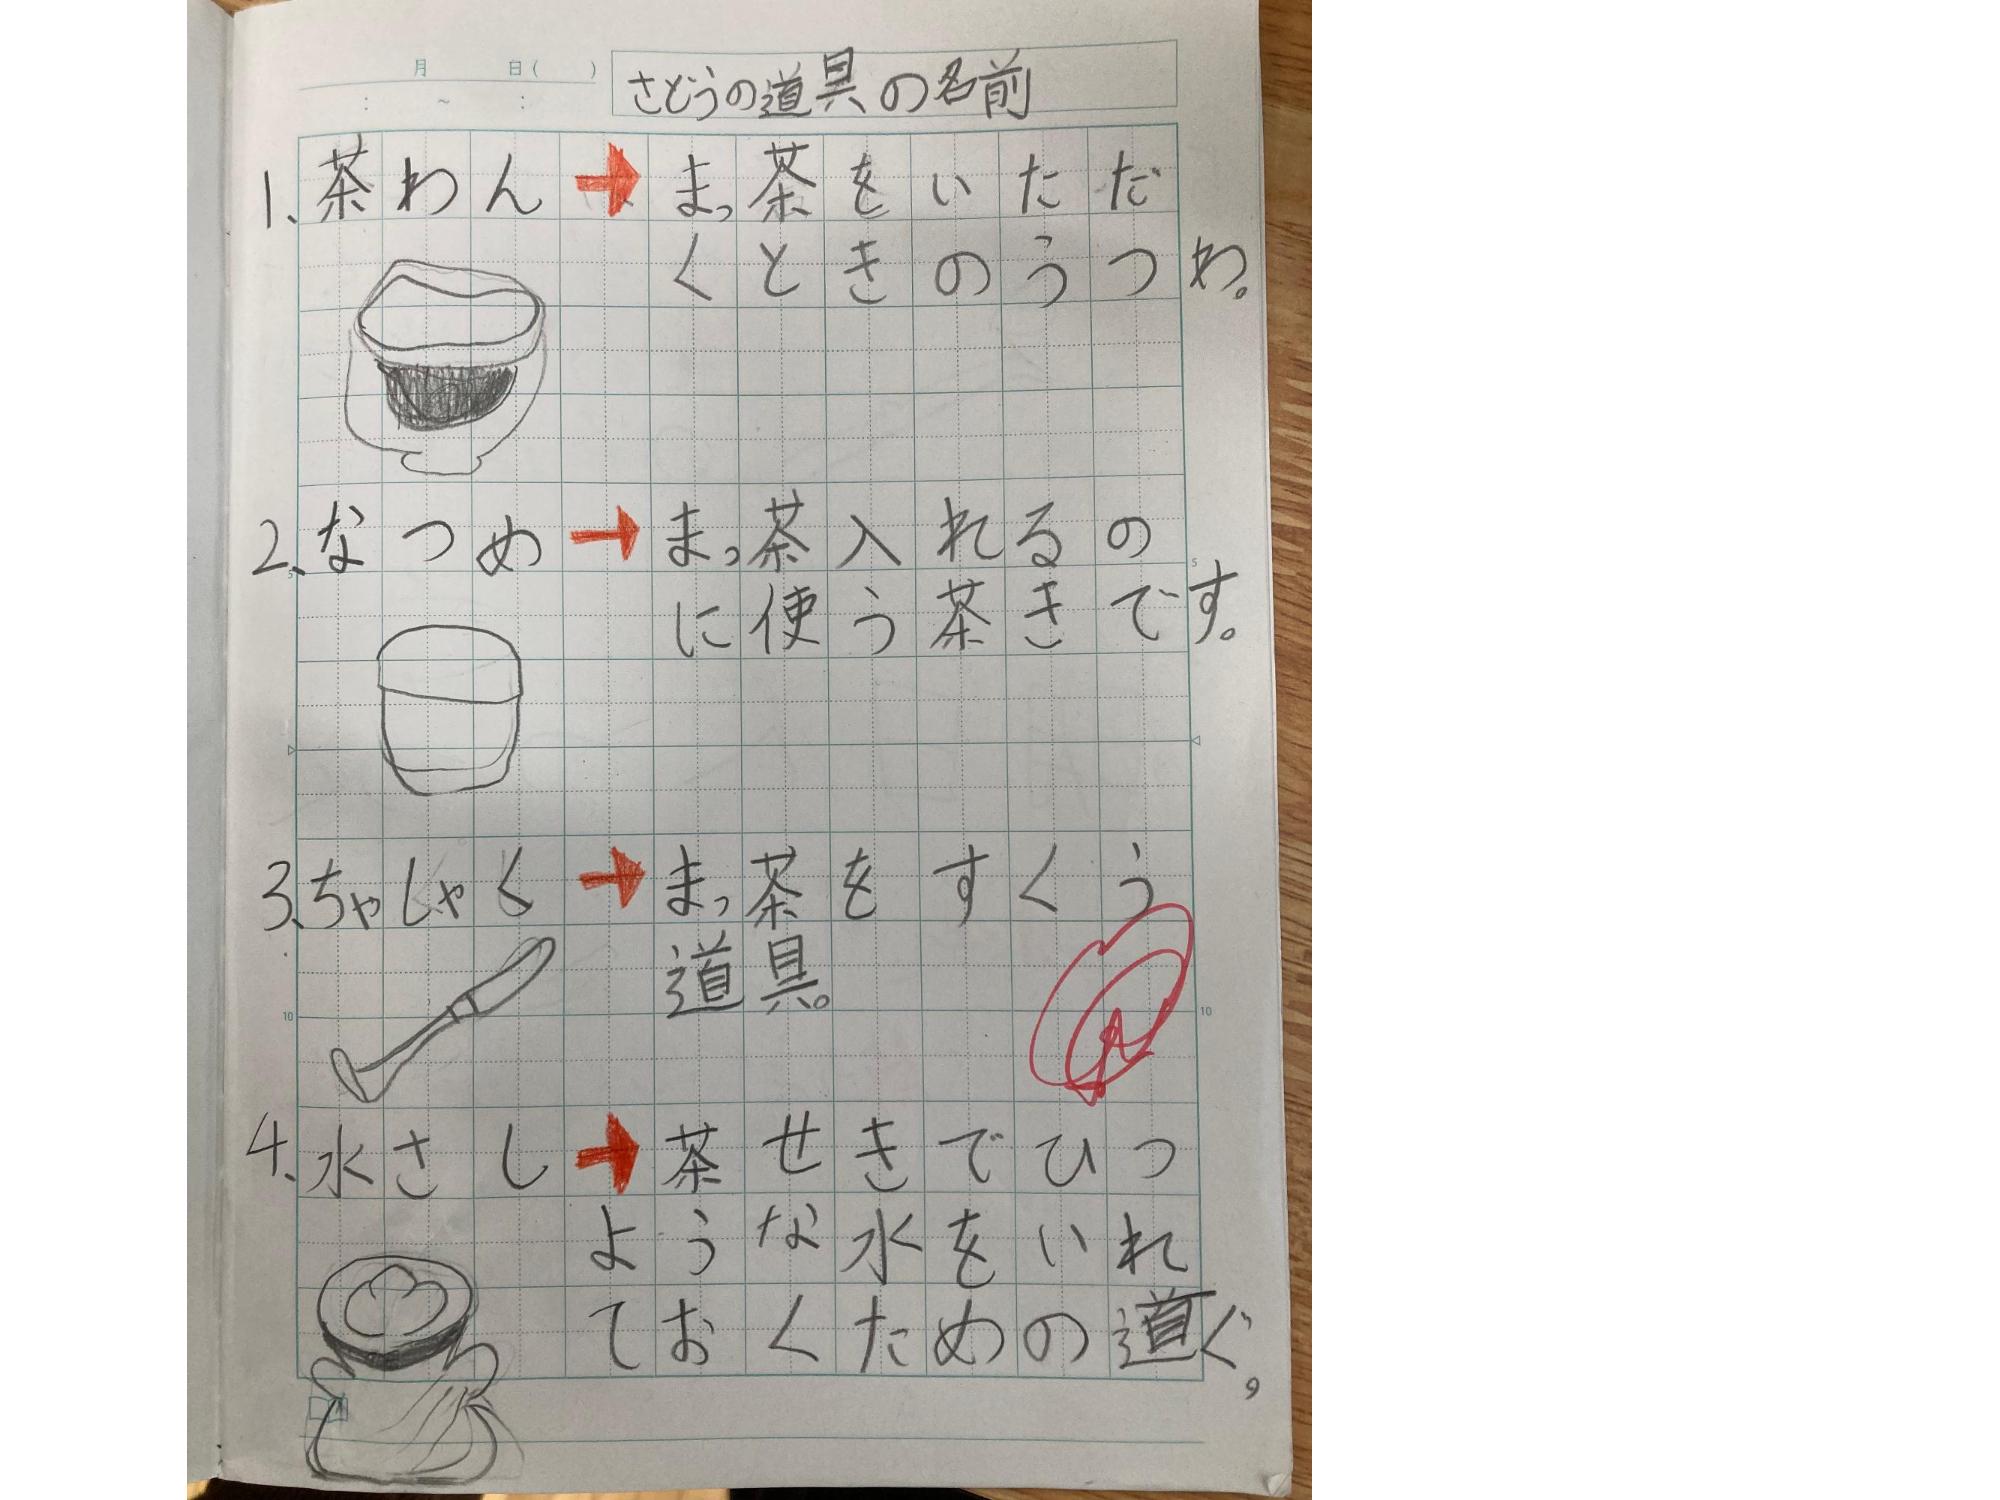 月 日( )
: ~ :
さどうの道具の名前
1、茶わん→まっ茶をいただ
くときのうつわ。
2、なつめ→まっ茶入れるの
5 5
に使う茶きです。
3、ちゃしゃく→まっ茶をすくう
道具。
10 10
4、水さし→茶せきでひつ
ような水をいれ
ておくための道ぐ。